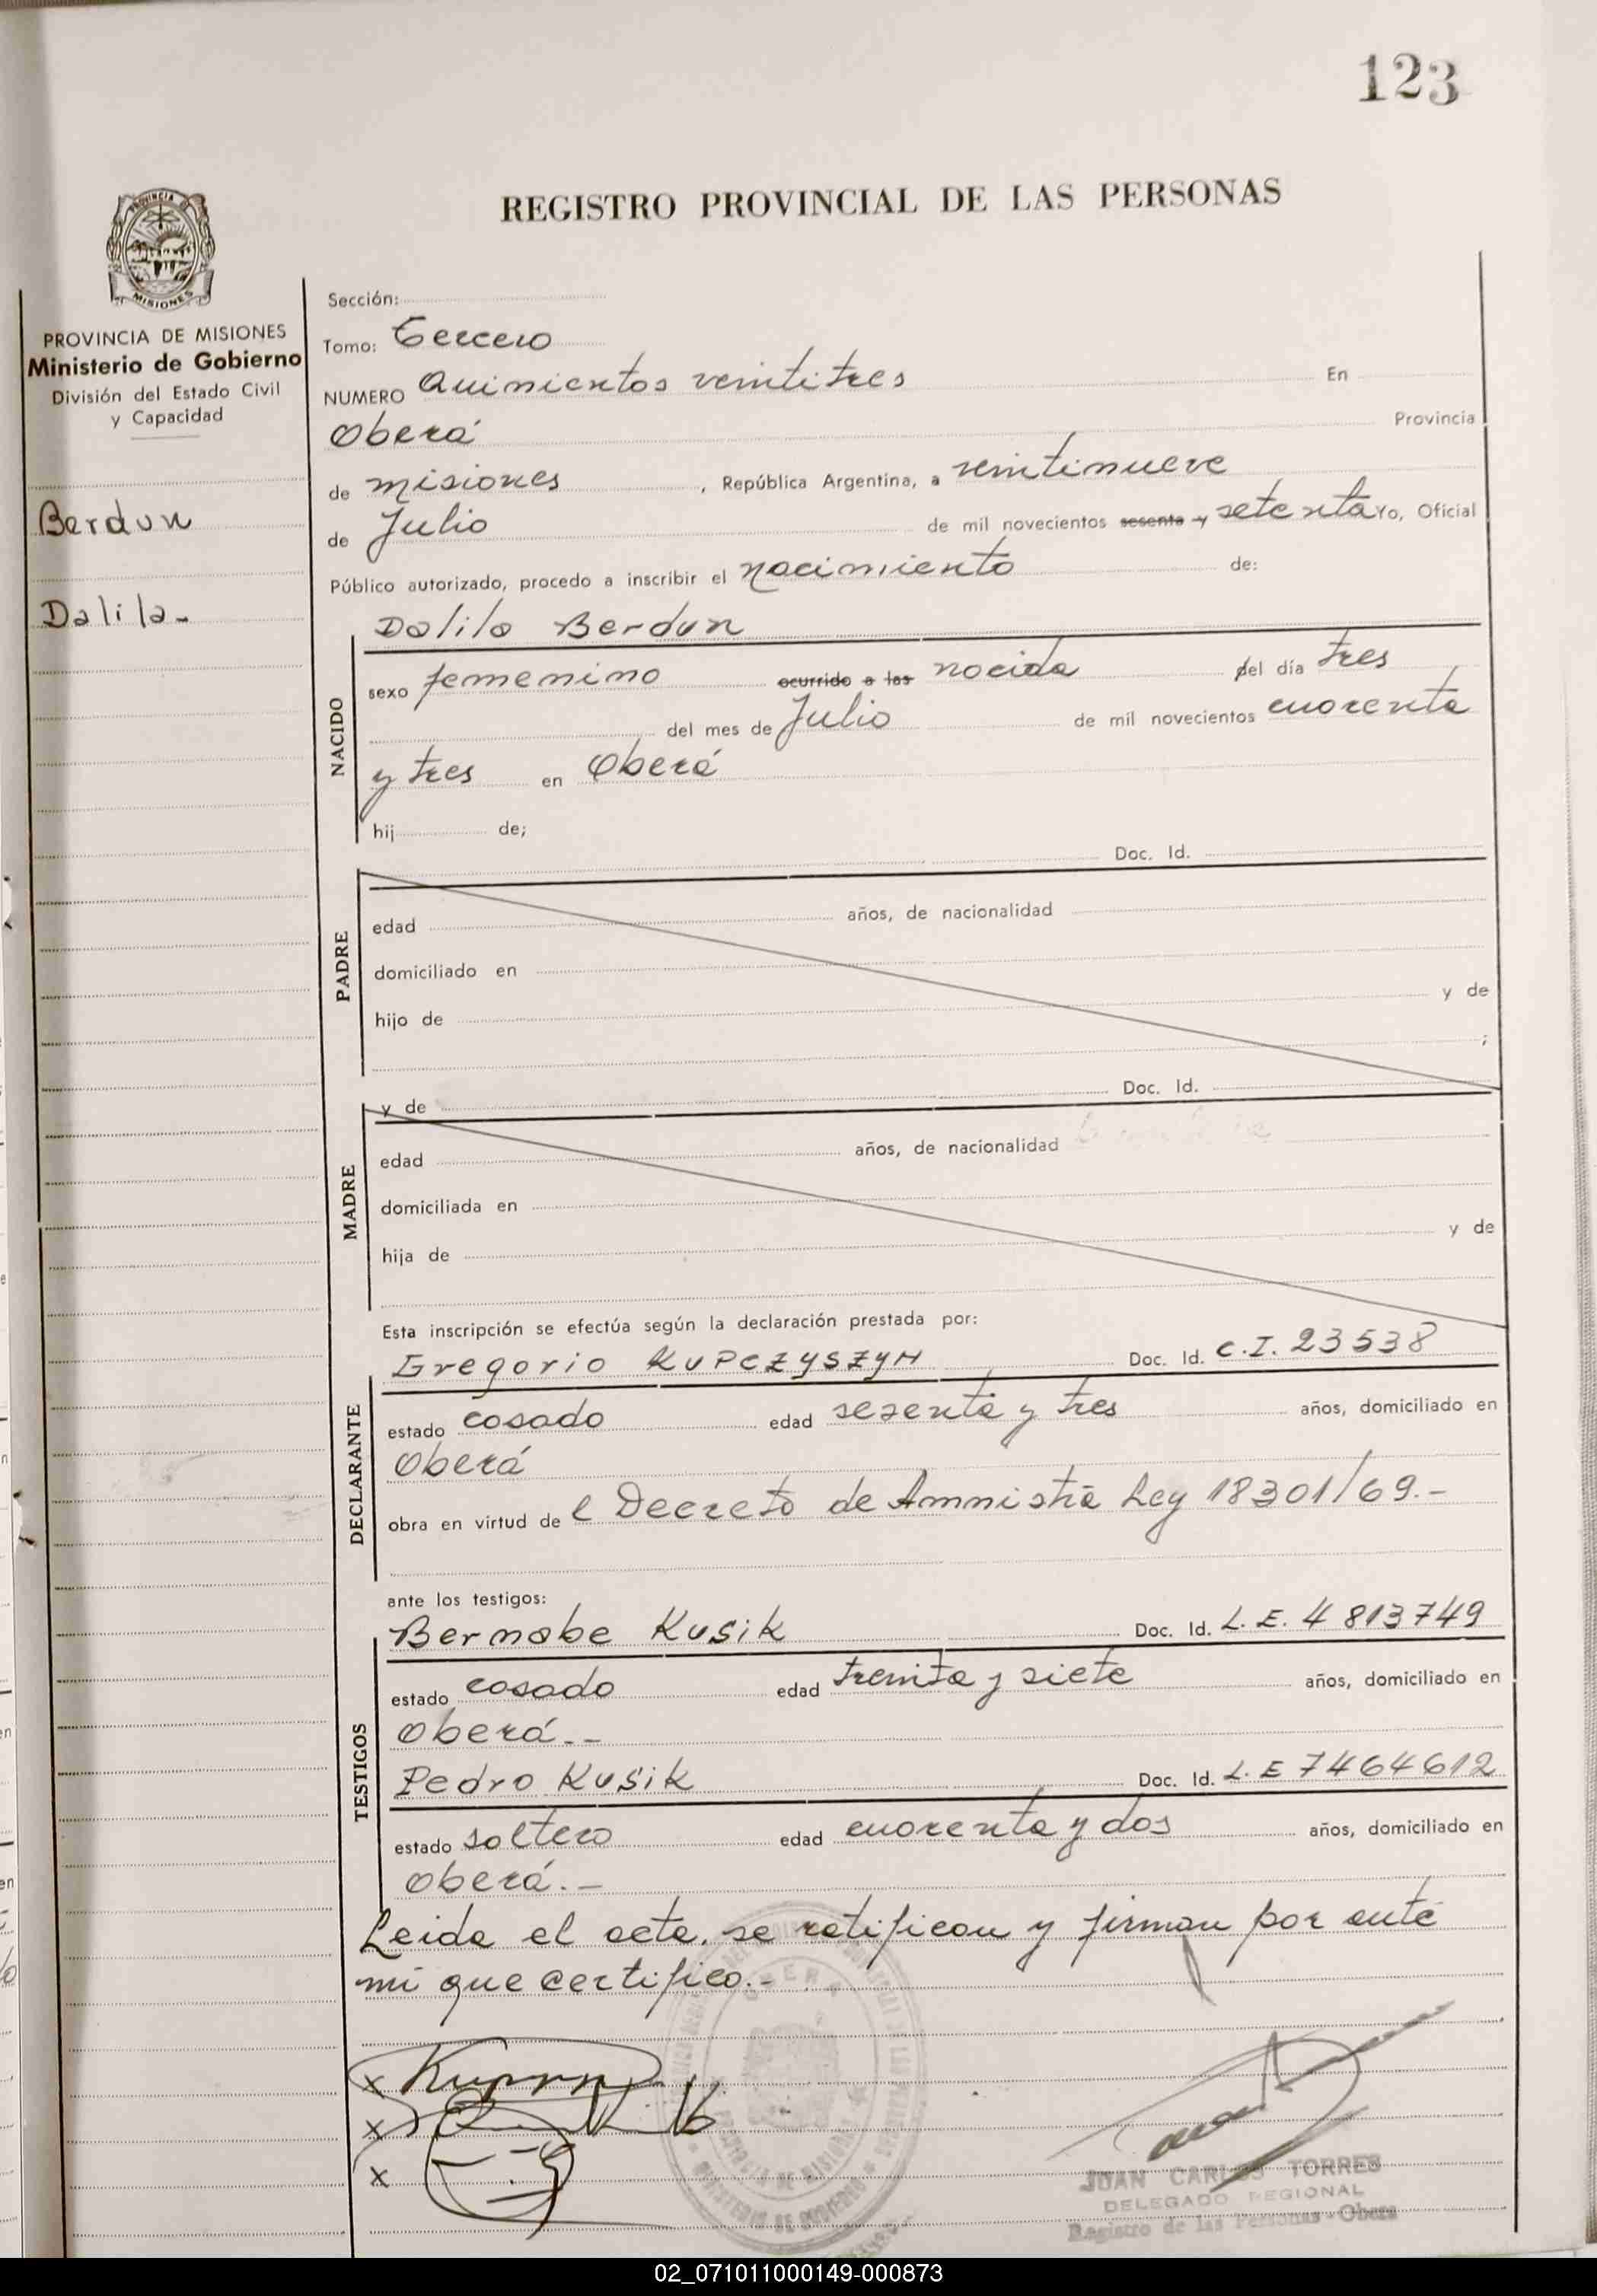 123
REGISTRO PROVINCIAL DE LAS PERSONAS
PROVINCIA DE MISIONES
Ministerio de Gobierno
División del Estado Civil
y Capacidad
Berdun
Dalila-
Sección:
Tomo: Tercero
NUMERO Quinientos veintitres En
Oberá Provincia
de misiones , República Argentina, a veintinueve
de Julio de mil novecientos sesenta y setenta Yo, Oficial
Público autorizado, procedo a inscribir el nacimiento de:
NACIDO
Dalila Berdun
sexo femenino ocurrido a las nacida del día tres
del mes de Julio de mil novecientos cuarenta
y tres en Oberá
hij de;
PADRE
Doc. Id.
edad años, de nacionalidad
domiciliado en
hijo de y de
;
MADRE
y de Doc. Id.
edad años, de nacionalidad
domiciliada en
hija de y de
Esta inscripción se efectúa según la declaración prestada por:
DECLARANTE
Gregorio KUPCZYSZYN Doc. Id. C.I. 23538
estado casado edad sesenta y tres años, domiciliado en
Oberá
obra en virtud de l Decreto de Amnistia Ley 18301/69.-
ante los testigos:
TESTIGOS
Bernabe Kusik Doc. Id. L.E. 4813749
estado casado edad treinta y siete años, domiciliado en
Oberá.--
Pedro Kusik Doc. Id. L.E 7464612
estado soltero edad cuarenta y dos años, domiciliado en
Oberá.-
Leida el acta, se ratifican y firman por ante
mi que certifico.-
x
x
x
JUAN CARLOS TORRES
DELEGADO REGIONAL
Registro de las Personas - Obera
02_071011000149-000873